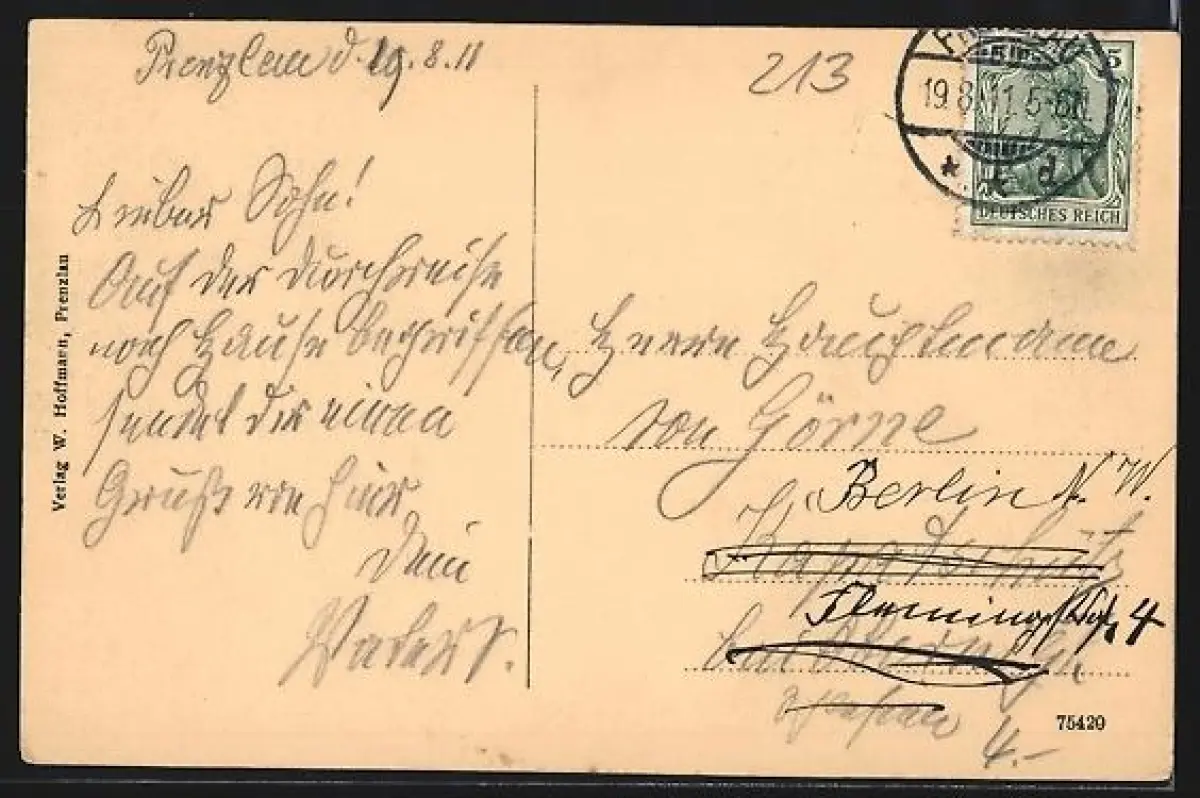 Prenzlau d. 19.8.11
213
PRENZLAU
19.8.11. 5-6N.
* * d
5
DEUTSCHES REICH
Lieber Sohn!
Auf der Durchreise
nach Hause begriffen,
sendet dir einen
Gruß von hier
Dein
Vater
Herrn Hauptmann
von Görne
Berlin N.W.
Flemingstr. 4
4.-
Verlag W. Hoffmann, Prenzlau
75420